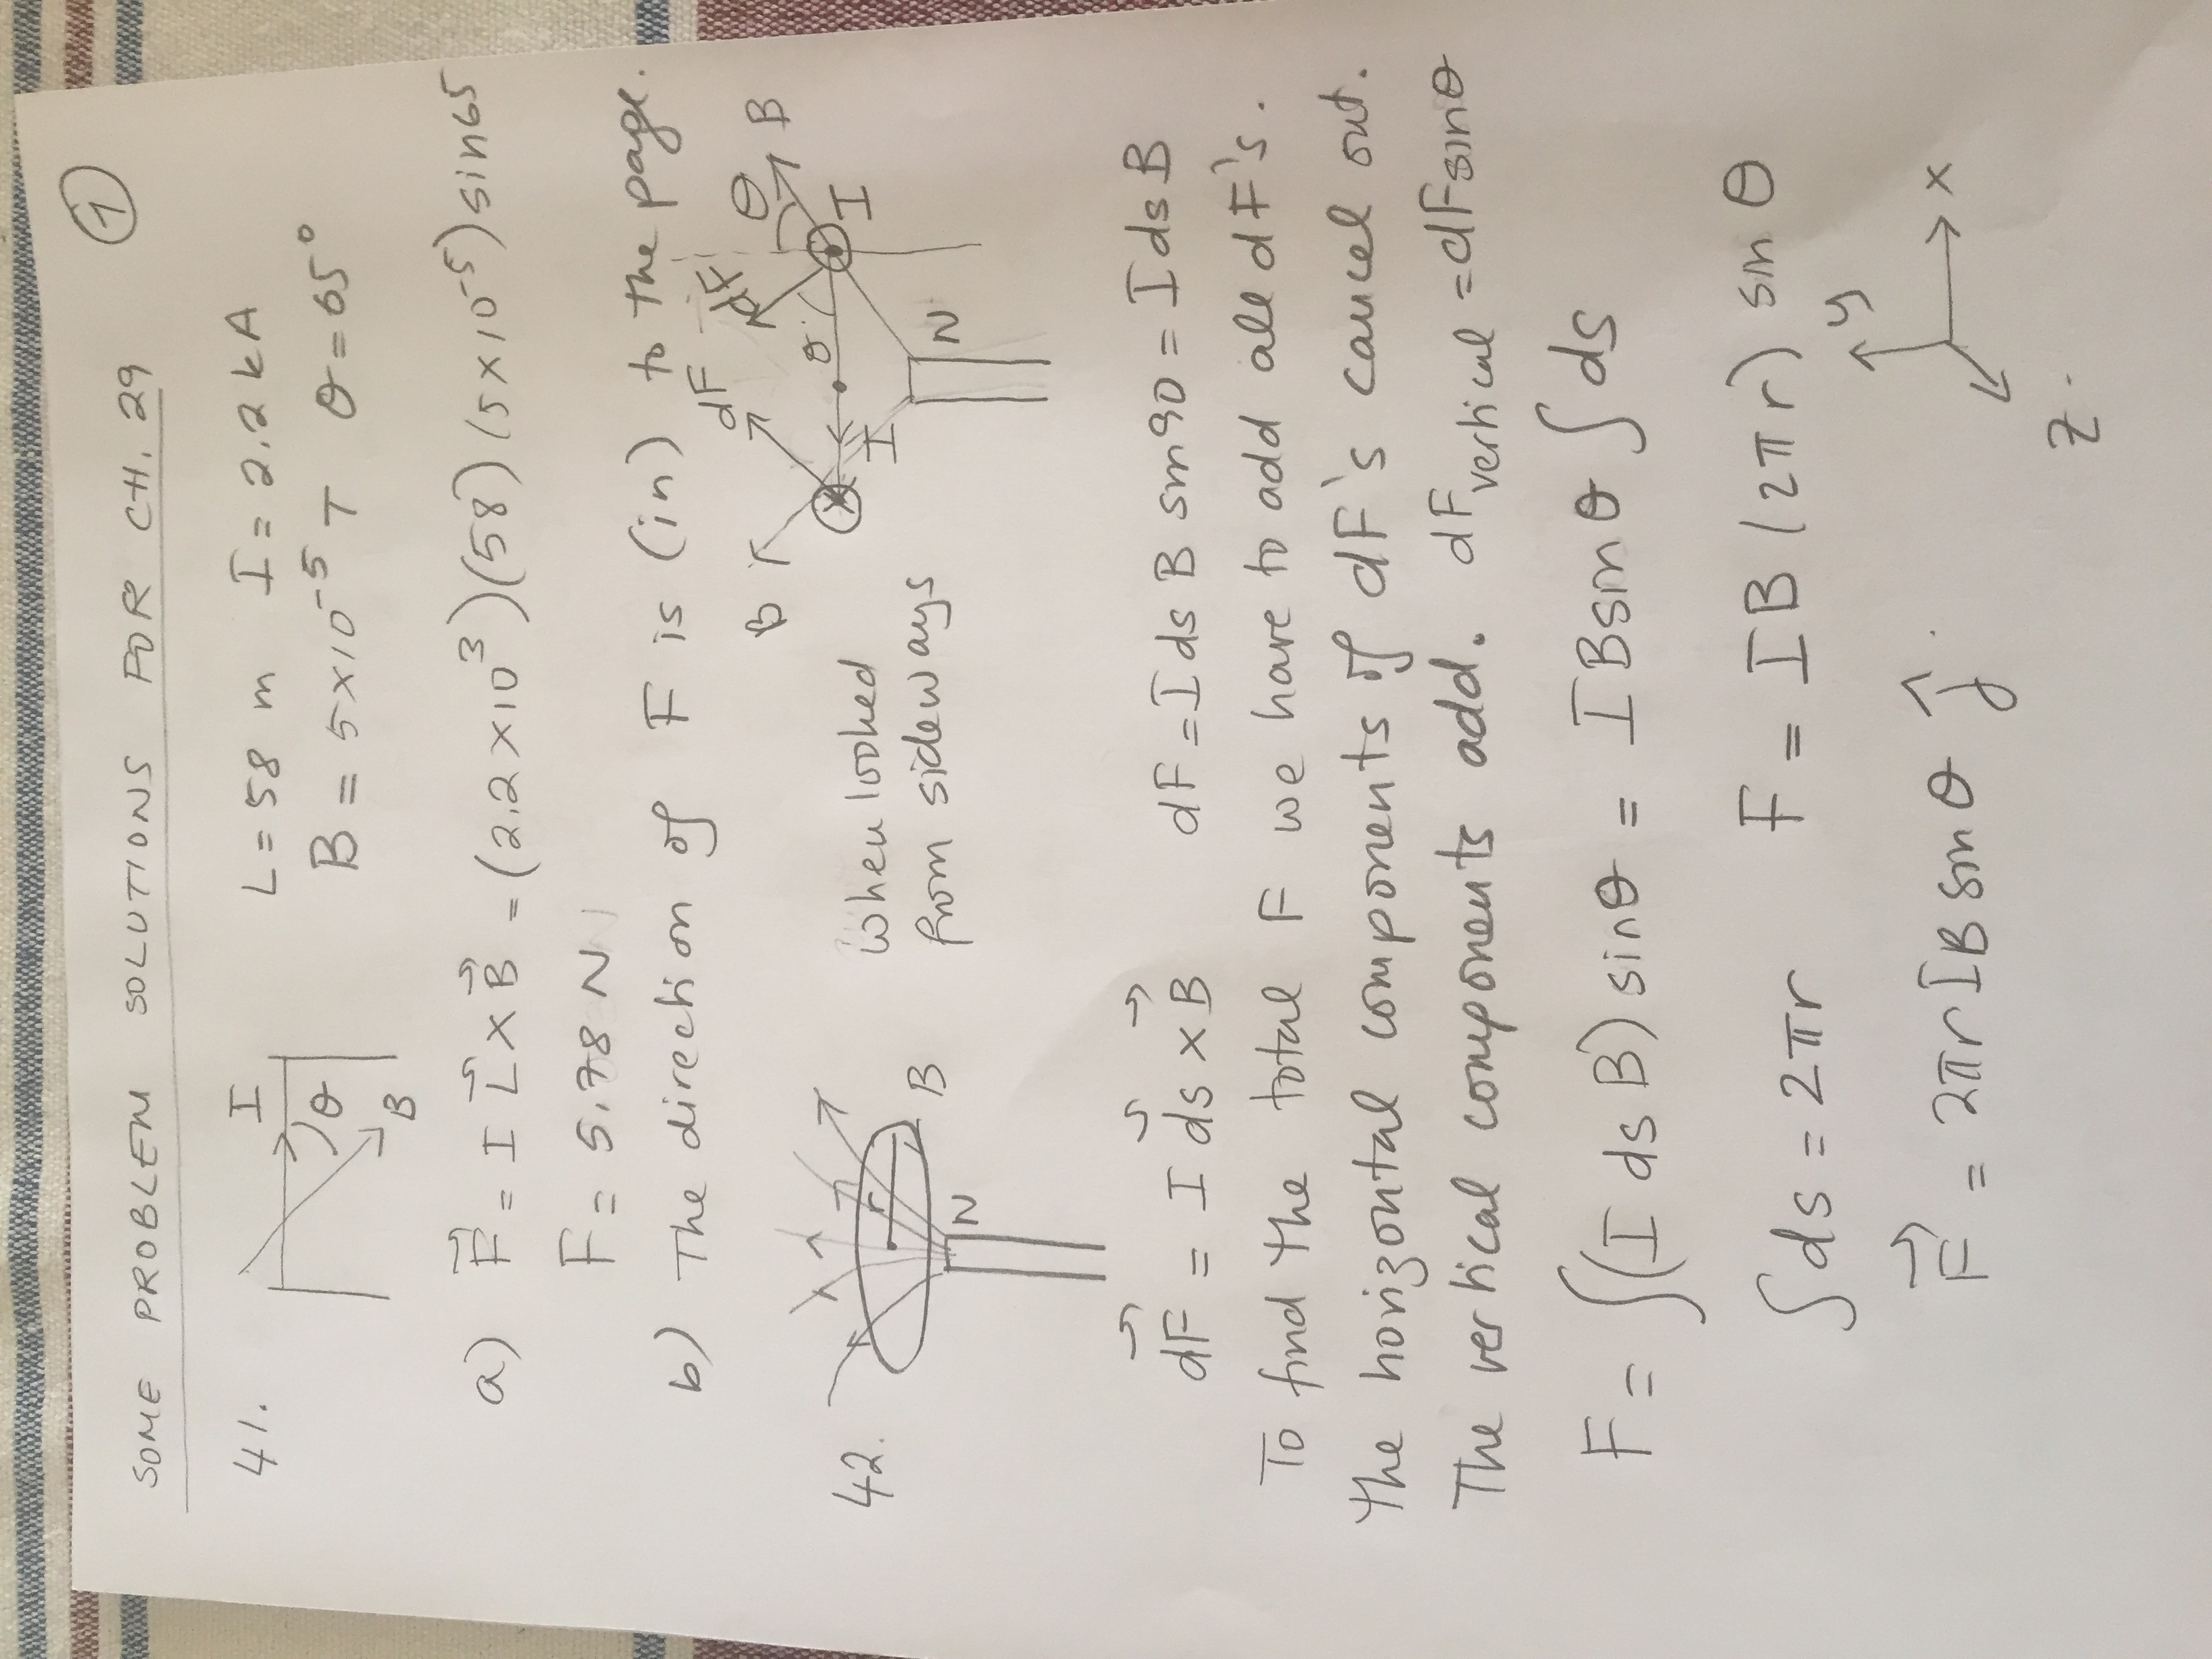 1
SOME PROBLEM SOLUTIONS FOR CH. 29
41.
I
θ
B
L = 58 m I = 2.2 kA
B = 5×10⁻⁵ T θ = 65°
a) F⃗ = I L⃗ × B⃗ = (2.2×10³)(58)(5×10⁻⁵) sin65
F = 5.78 N
b) The direction of F is (in) to the page.
42.
r
B
N
when looked
from sideways
B dF dF θ B
θ I
I
N
dF⃗ = I ds⃗ × B⃗ dF = I ds B sin90 = I ds B
To find the total F we have to add all dF's.
The horizontal components of dF's cancel out.
The vertical components add. dF_vertical = dF sinθ
F = ∫(I ds B) sinθ = I B sinθ ∫ds
∫ds = 2πr F = I B (2πr) sin θ
F⃗ = 2πr I B sin θ ĵ
y
x
z